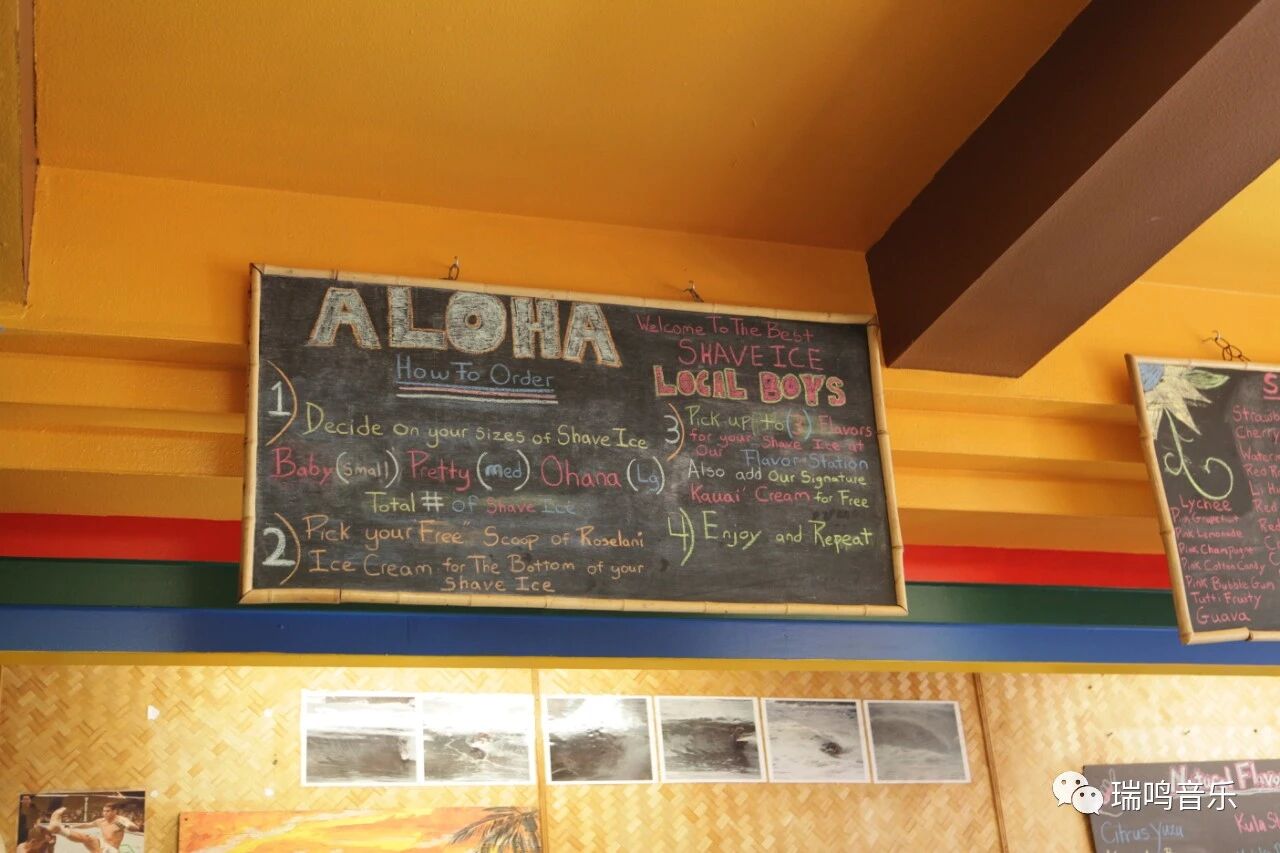 ALOHA
How To Order
1) Decide on your sizes of Shave Ice
Baby (small) Pretty (med) Ohana (Lg)
Total # of Shave Ice
2) Pick your "Free" Scoop of Roselani
Ice Cream for The Bottom of your
Shave Ice
Welcome To The Best
SHAVE ICE
LOCAL BOYS
3) Pick up to (3) Flavors
for your Shave Ice at
Our Flavor Station
Also add Our Signature
Kauai' Cream for Free
4) Enjoy and Repeat
Lychee
Pink Grapefruit
Pink Lemonade
Pink Champagne
Pink Cotton Candy
Pink Bubble Gum
Tutti Fruity
Guava
Citrus Yuzu
瑞鸣音乐